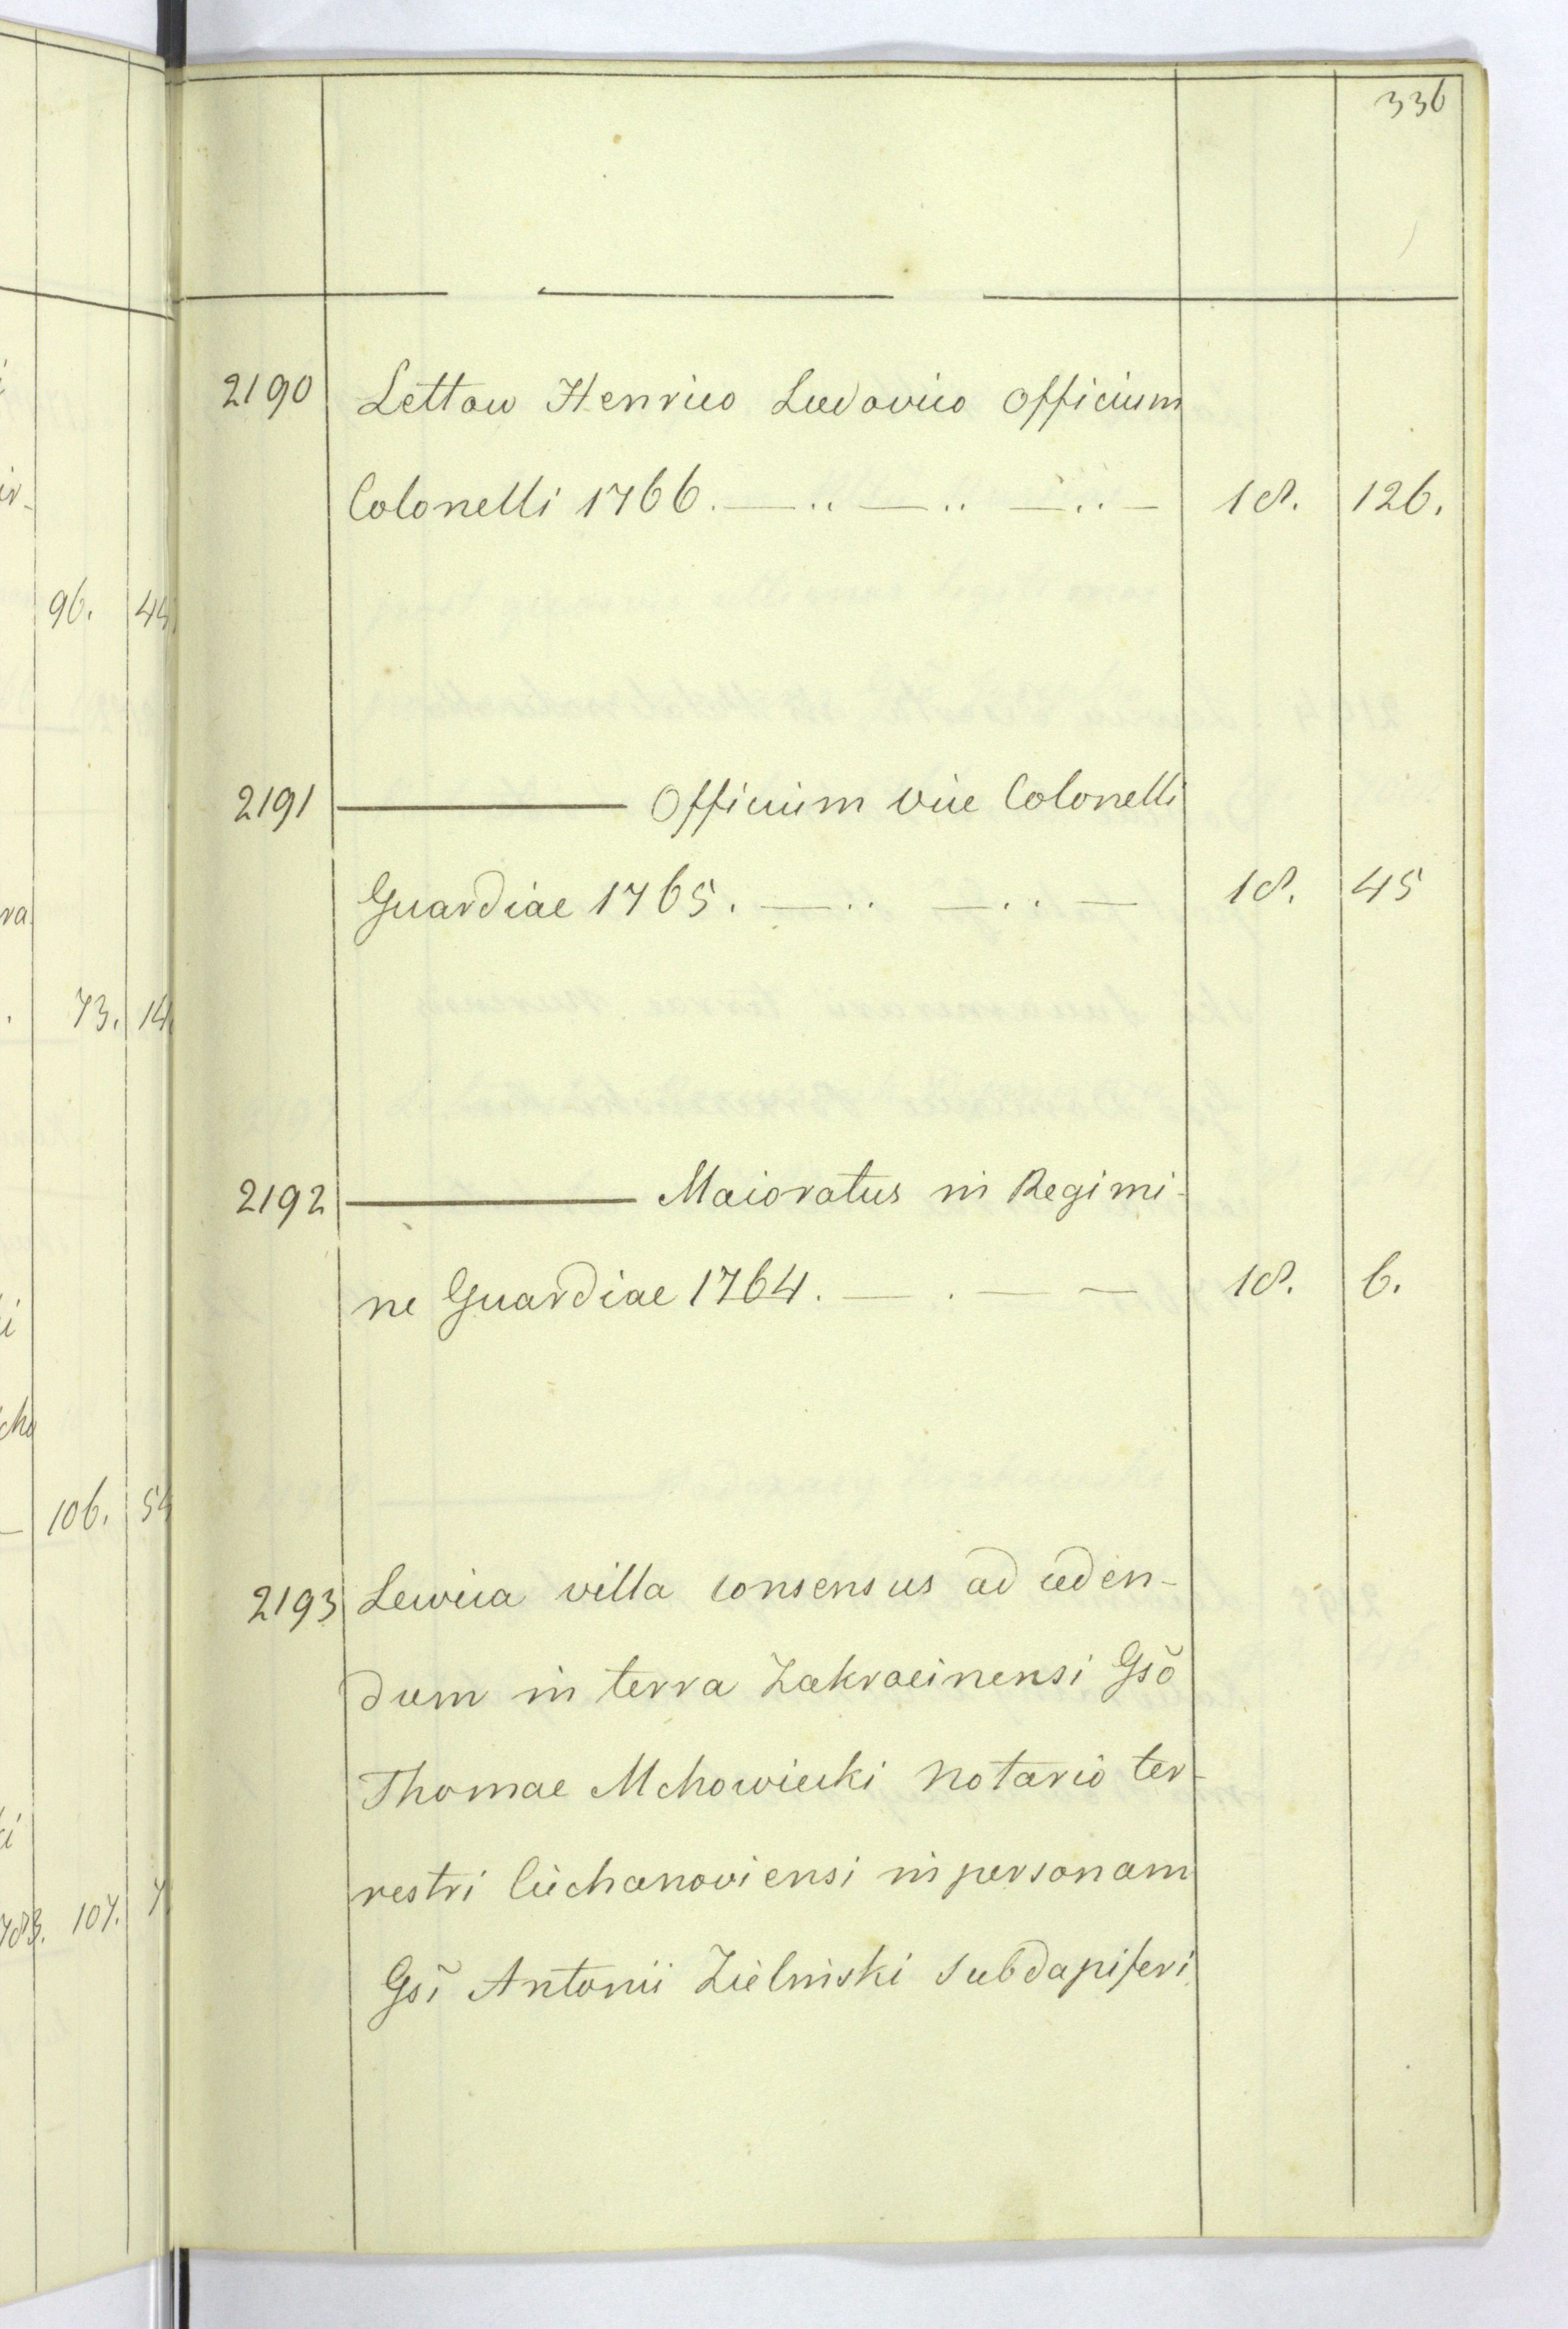 336
2190 Lettow Henrico Ludovico Officium
Colonelli 1766. — .. — .. — .. — 18. 126.
2191 ——— Officium vice Colonelli
Guardiae 1765. — .. — .. — 18. 45
2192 ——— Maioratus in Regimi-
ne Guardiae 1764. — . — — 18. 6.
2193 Lewica villa consensus ad ceden-
dum in terra Zakrocinensi Gsõ
Thomae Mchowiecki Notario ter-
restri Ciechanoviensi in personam
Gsĩ Antonii Zielinski Subdapiferi
96. 44
73. 14
cho
106. 54
107. 7